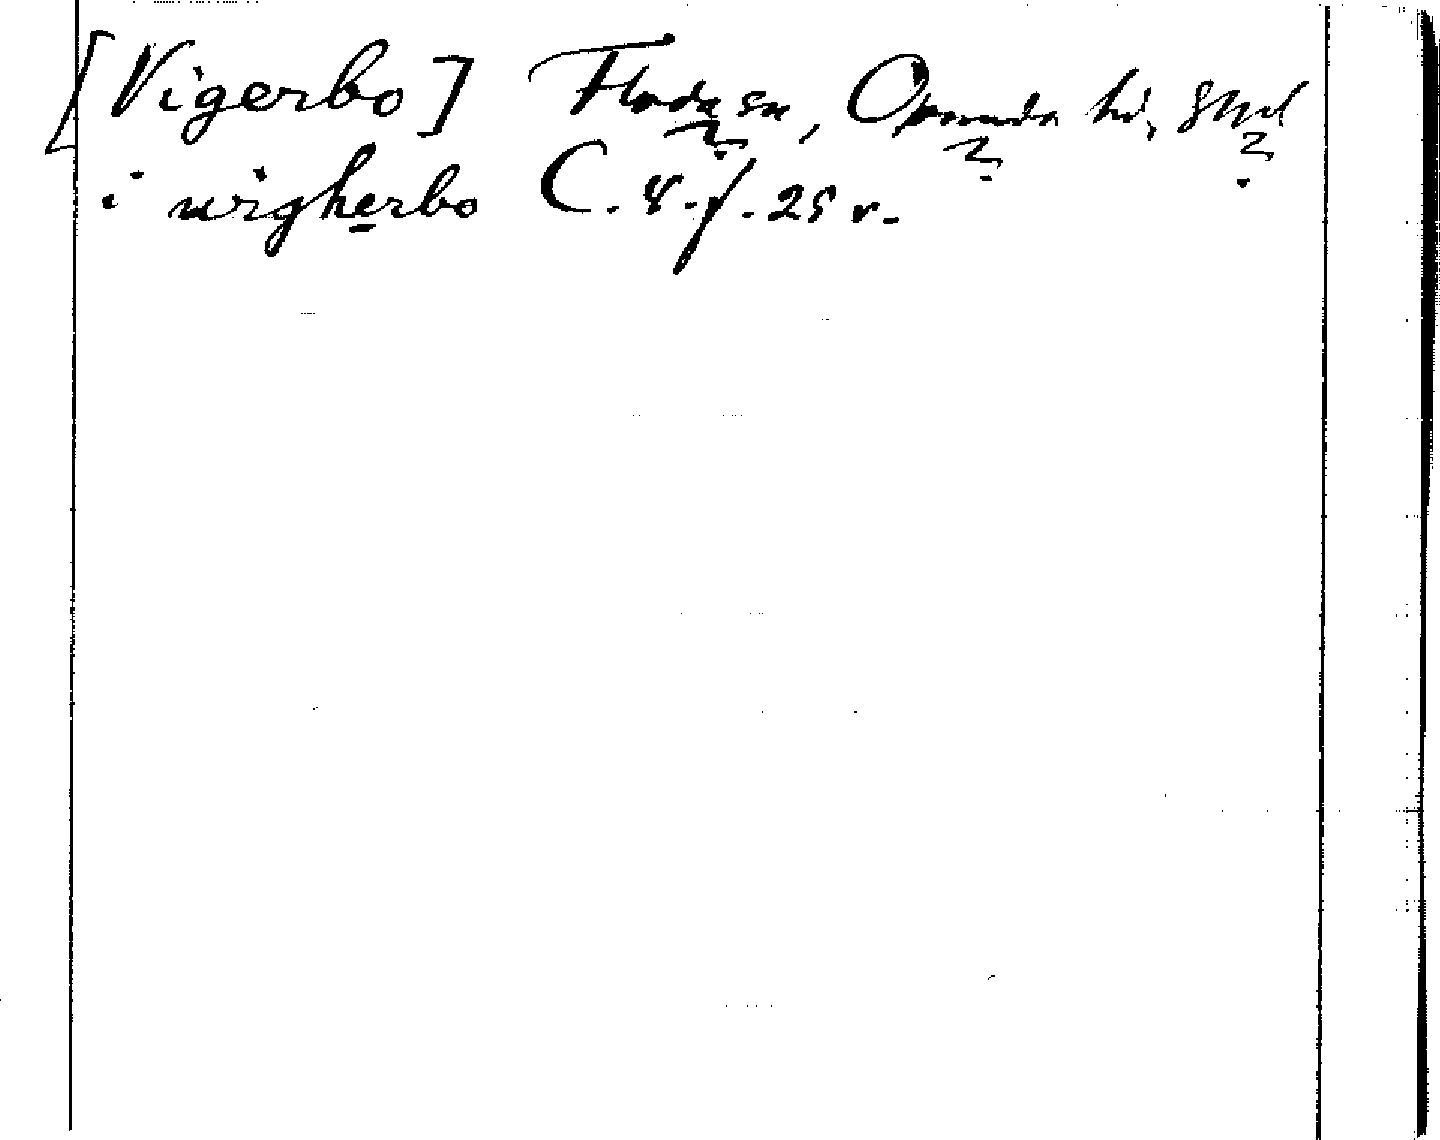 [Vigerbo] Floda sn, Oppunda hd, Sdml
i wigherbo C. 8. f. 25 v.